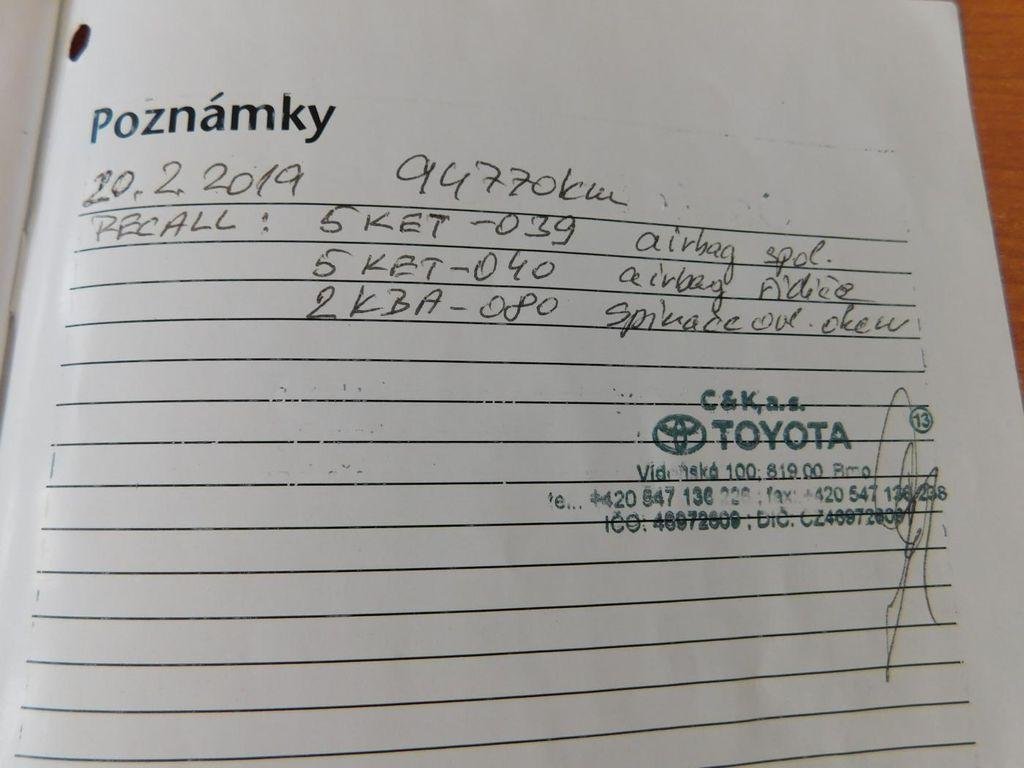 Poznámky
20.2.2019 94770km
RECALL: 5KET-039 airbag spol.
5KET-040 airbag řidiče
2KBA-080 spínače ovl. oken
C & K, a.s.
13
TOYOTA
100, 619 00 Brno
+420 547 136 fax: +420 547 136 238
IČO: ; DIČ: